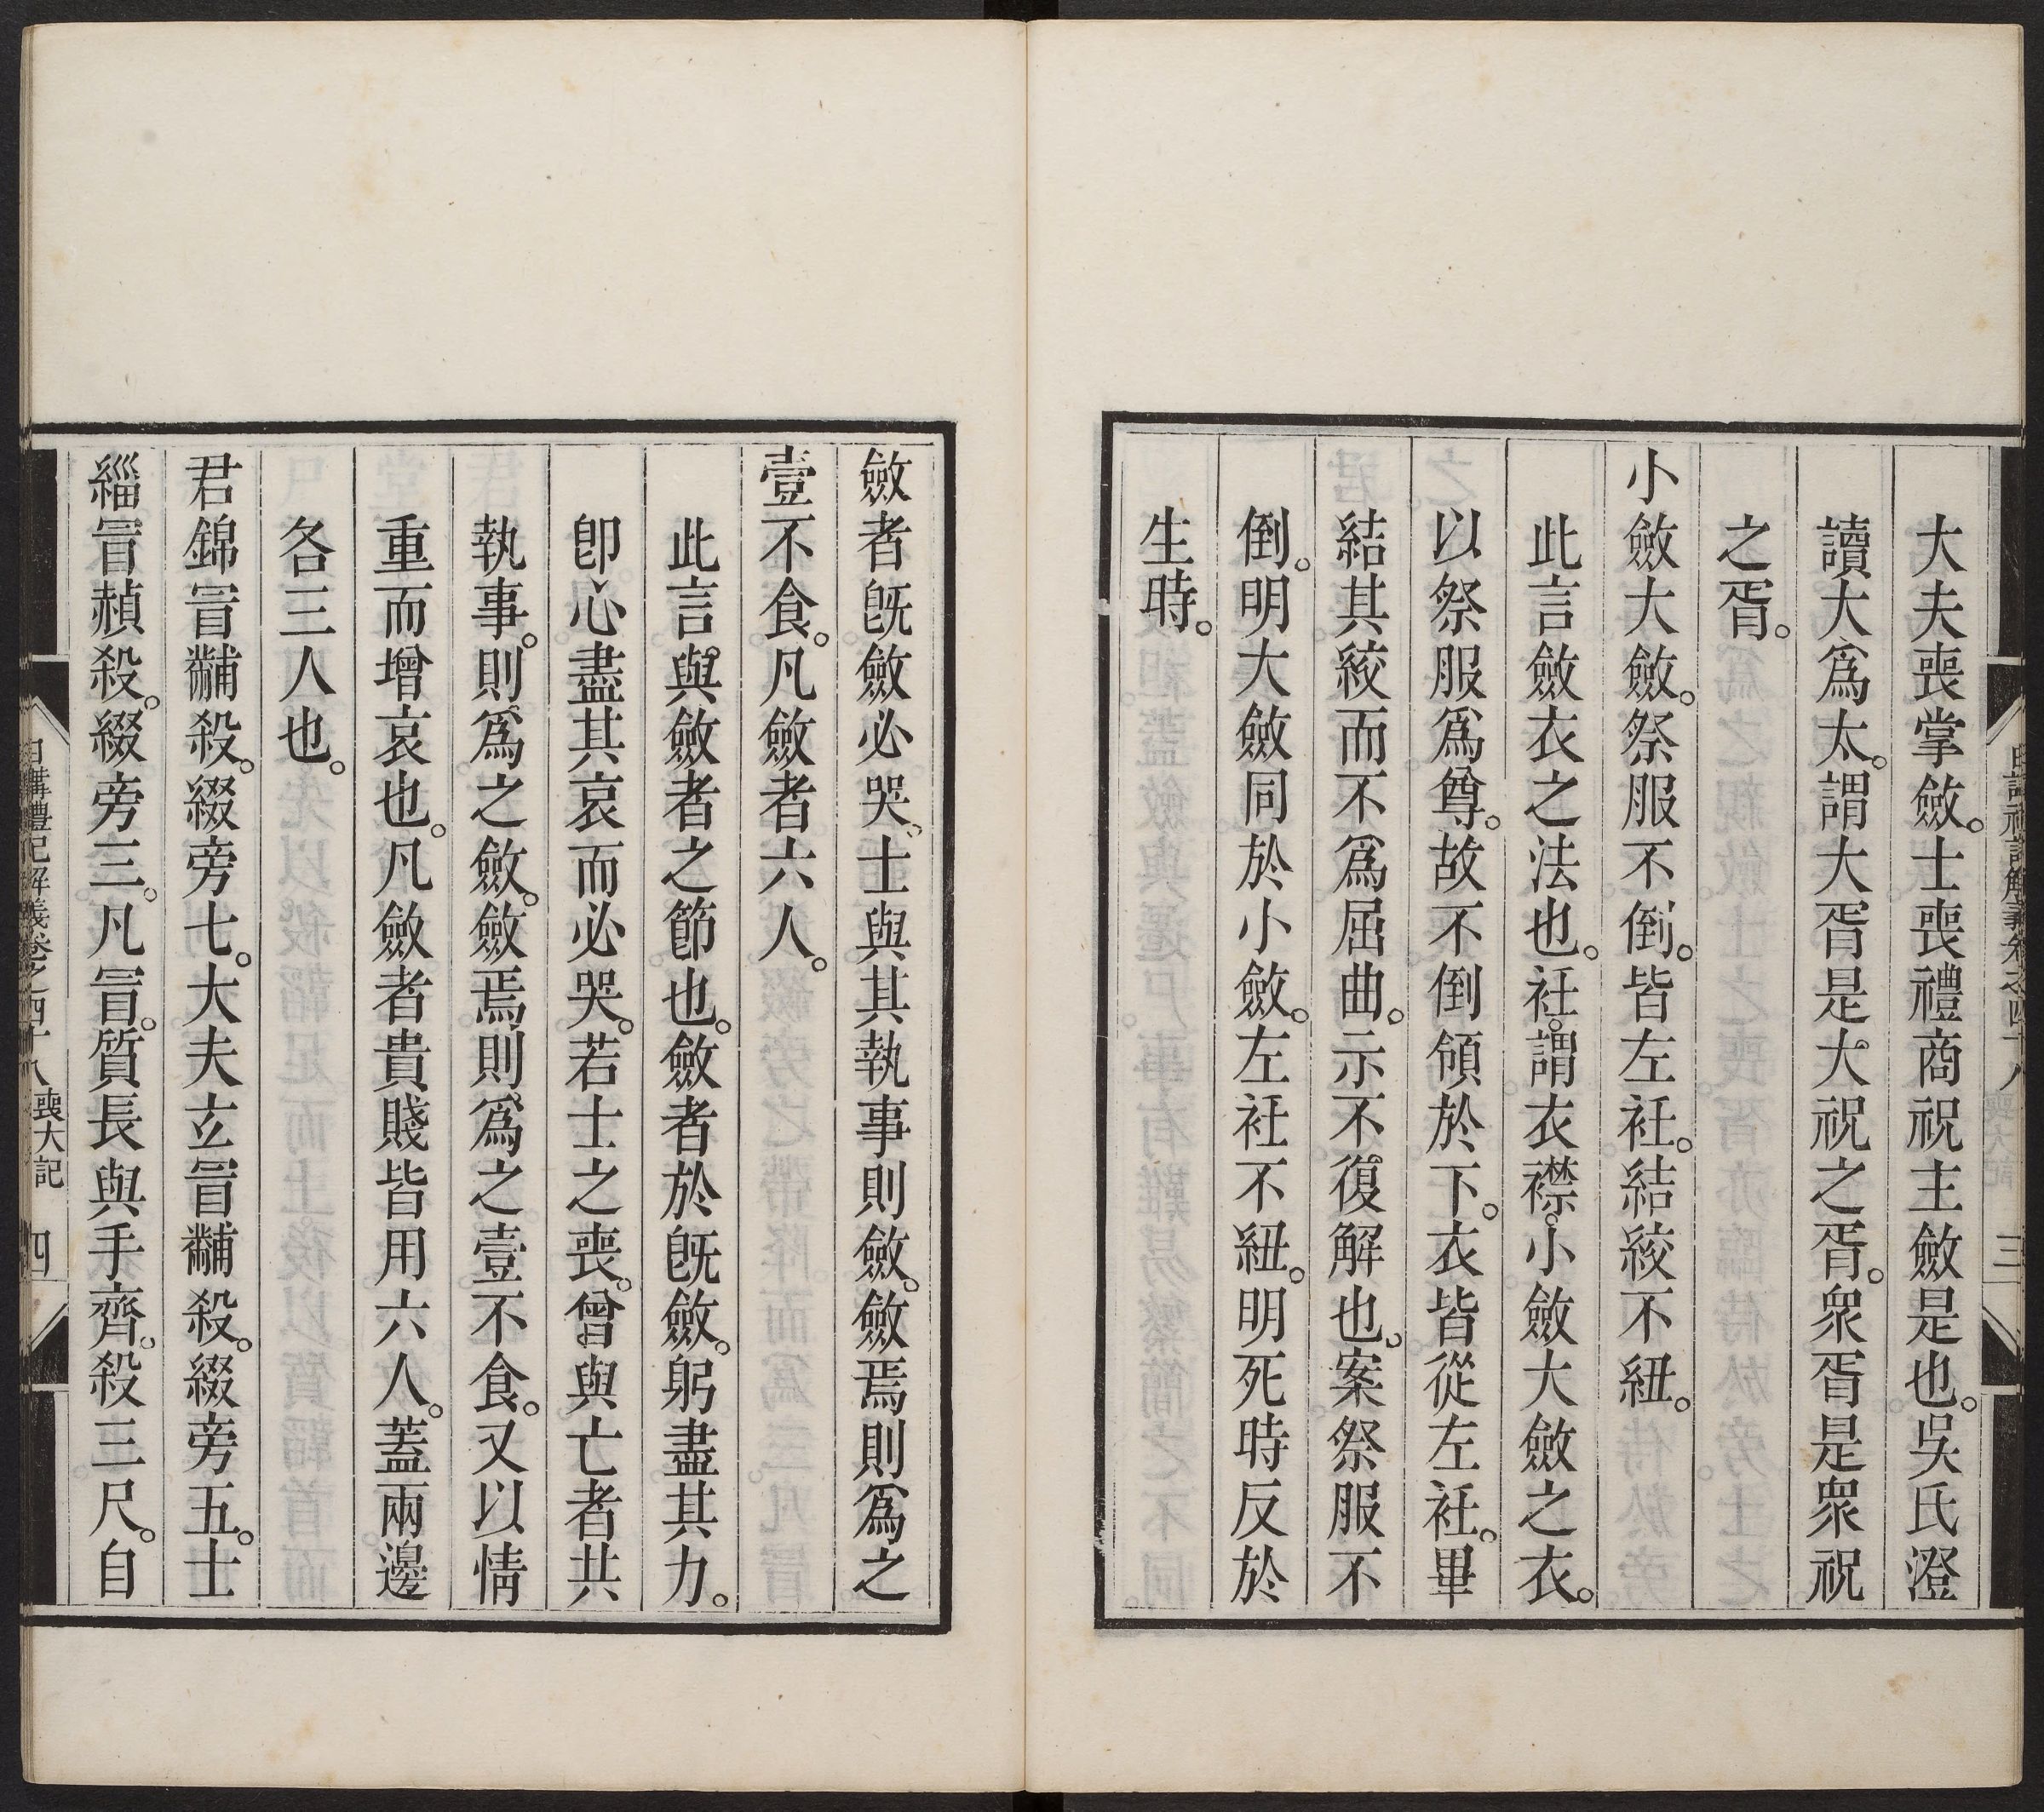 大夫喪掌斂。士喪禮商祝主斂是也。吳氏澄
讀大爲太。謂大胥是大祝之胥。衆胥是衆祝
之胥。
小斂大斂。祭服不倒。皆左衽。結絞不紐。
此言斂衣之法也。衽。謂衣襟。小斂大斂之衣。
以祭服爲尊。故不倒領於下。衣皆從左衽。畢
結其絞而不爲屈曲。示不復解也。案祭服不
倒。明大斂同於小斂。左衽不紐。明死時反於
生時。
日講禮記解義卷之四十八 喪大記 三
斂者旣斂必哭。士與其執事則斂。斂焉則爲之
壹不食。凡斂者六人。
此言與斂者之節也。斂者於旣斂。躬盡其力。
卽心盡其哀而必哭。若士之喪。曾與亡者共
執事。則爲之斂。斂焉則爲之壹不食。又以情
重而增哀也。凡斂者貴賤皆用六人。蓋兩邊
各三人也。
君錦冒黼殺。綴旁七。大夫玄冒黼殺。綴旁五。士
緇冒赬殺。綴旁三。凡冒。質長與手齊。殺三尺。自
日講禮記解義卷之四十八 喪大記 四